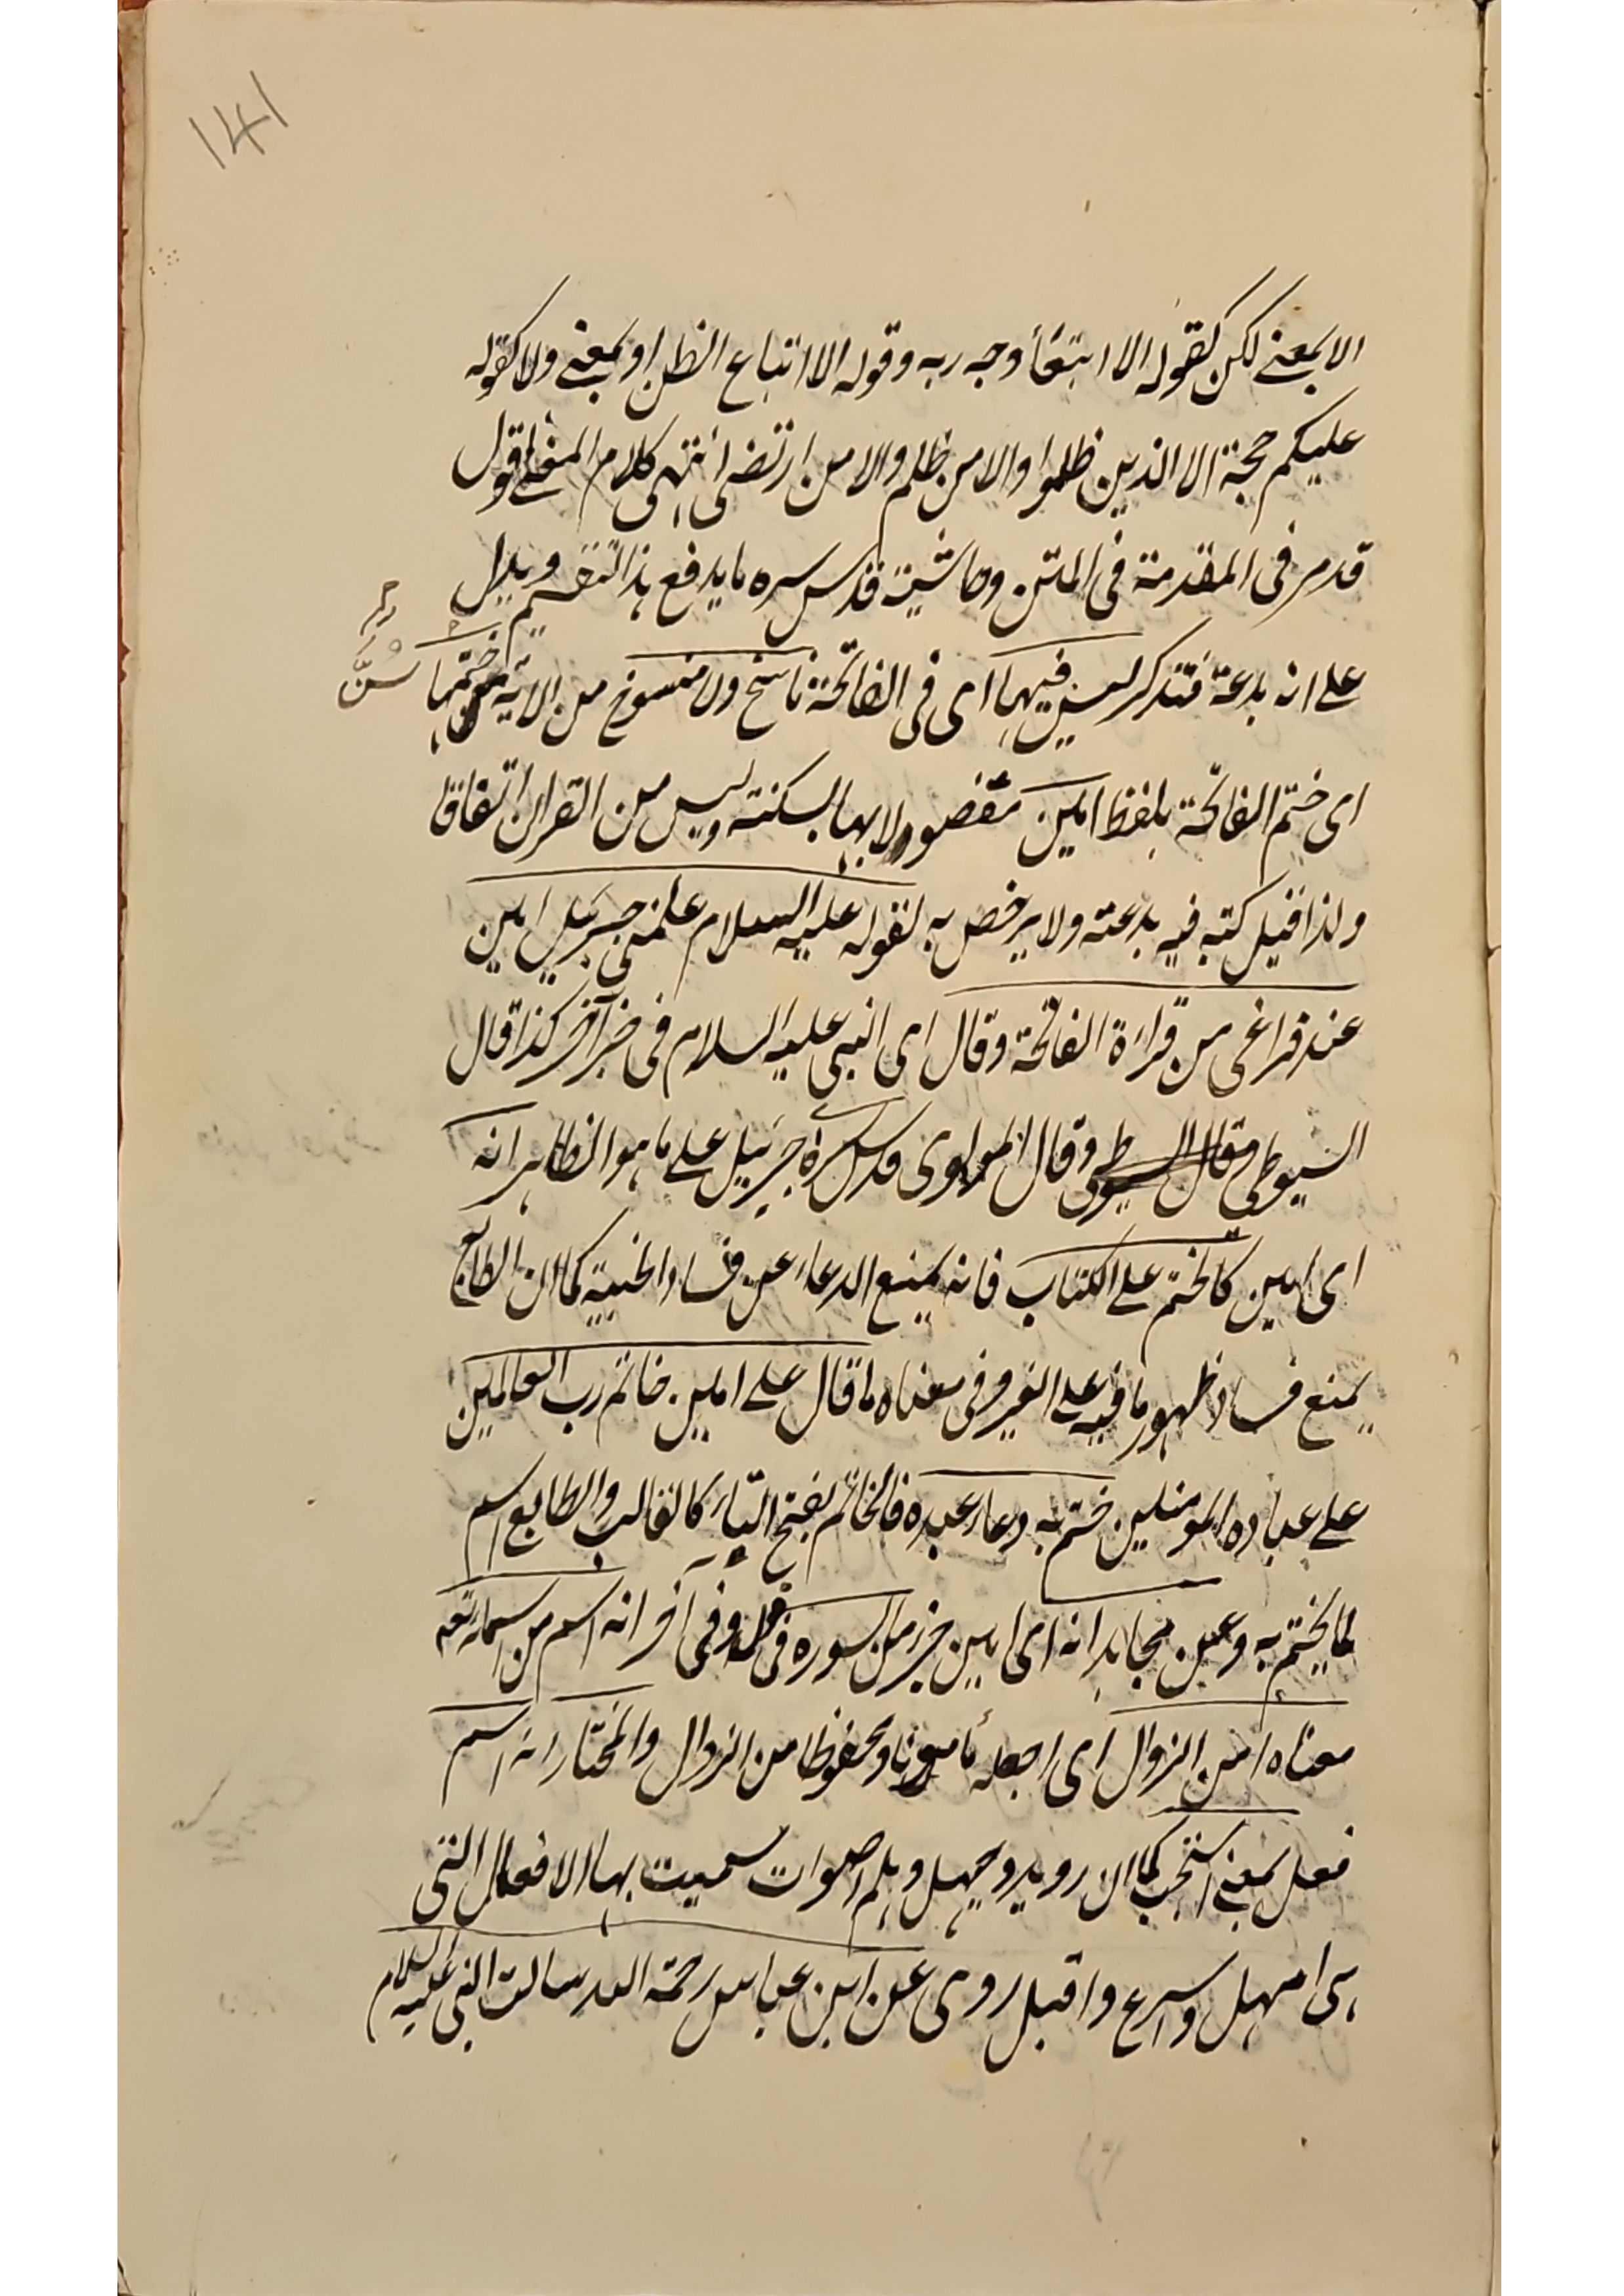 141
الا بمعنے لكن كقوله الا ابتغاء وجه ربه وقوله الا اتباع الظن او بمعنے ولا كقوله
عليكم حجة الا الذين ظلموا والا من ظلم والا من ارتضى انتهى كلام المغنے اقول
قد مر فى المقدمة فى المتن وحاشيته قدس سره ما يدفع هذا التقسيم ويدل
على انه بدعة فتذكر ليس فيها اى فى الفاتحة ناسخ ولا منسوخ من الاية ختمها سنّ
اى ختم الفاتحة بلفظ امين مقصورا بها لسكنته وليس من القران اتفاقا
ولذا قيل كتبه فيه بدعة ولا يرخص به لقوله عليه السلام علمنى جبرئيل امين
عند فراغى من قراءة الفاتحة وقال اى النبى عليه السلام فى خبر آخر كذا قال
السيوطى وقال السيوطى وقال المولوى قدس سره جبرئيل على ما هو الظاهر انه
اى امين كالختم على الكتاب فانه يمنع الدعاء عن فساد الخيبة كما ان الطابع
يمنع فساد ظهور ما فيه على الغير وفى معناه ما قال على امين خاتم رب العالمين
على عباده المومنين ختم به دعاء عبده فالخاتم بفتح التاء كالقالب والطابع اسم
لما يختم به وعن مجاهد انه اى امين جزء من السورة وفى آخر انه اسم من اسمائه تعه
معناه امن الزوال اى اجعله مأمونا ومحفوظا من الزوال والمختار انه اسم
فعل بمعنے استجب كما ان رويد وحيهل وهلم اصوات سميت بها الافعال التى
هى امهل واسرع واقبل روى عن ابن عباس رحمة الله سالت النبى عليه السلام